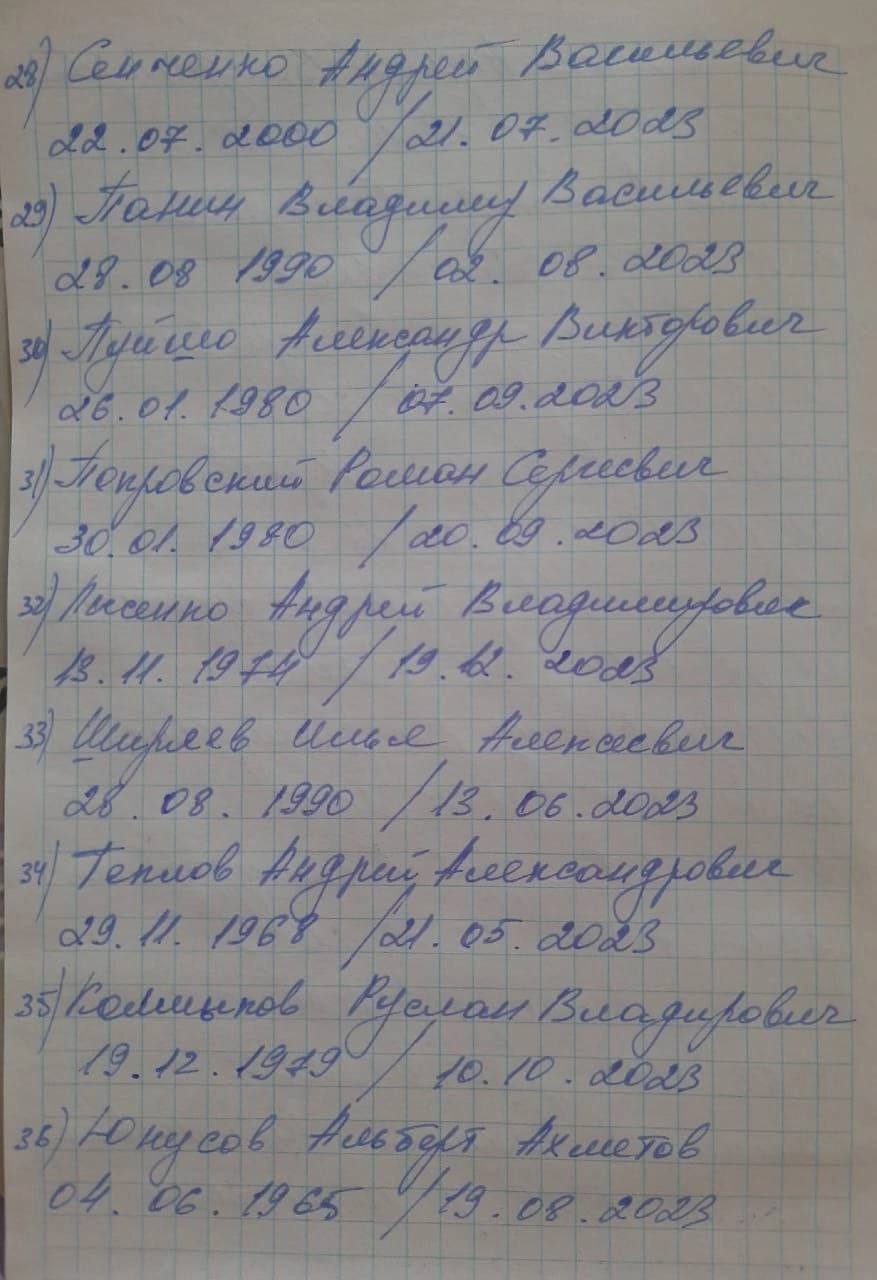 28) Сенченко Андрей Васильевич
22.07.2000 / 21.07.2023
29) Панин Владимир Васильевич
28.08 1990 / 02.08.2023
30) Пуйшо Александр Викторович
26.01.1980 / 07.09.2023
31) Покровский Роман Сергеевич
30.01.1980 / 20.09.2023
32) Лысенко Андрей
13.11.1974 / 19.12.2023
33) Ширяев Илья Алексеевич
28.08.1990 / 13.06.2023
34) Теплов Андрей Александрович
29.11.1968 / 21.05.2023
35) Руслан Владирович
19.12.1979 / 10.10.2023
36) Юнусов Альберт Ахметов
04.06.1965 / 19.08.2023